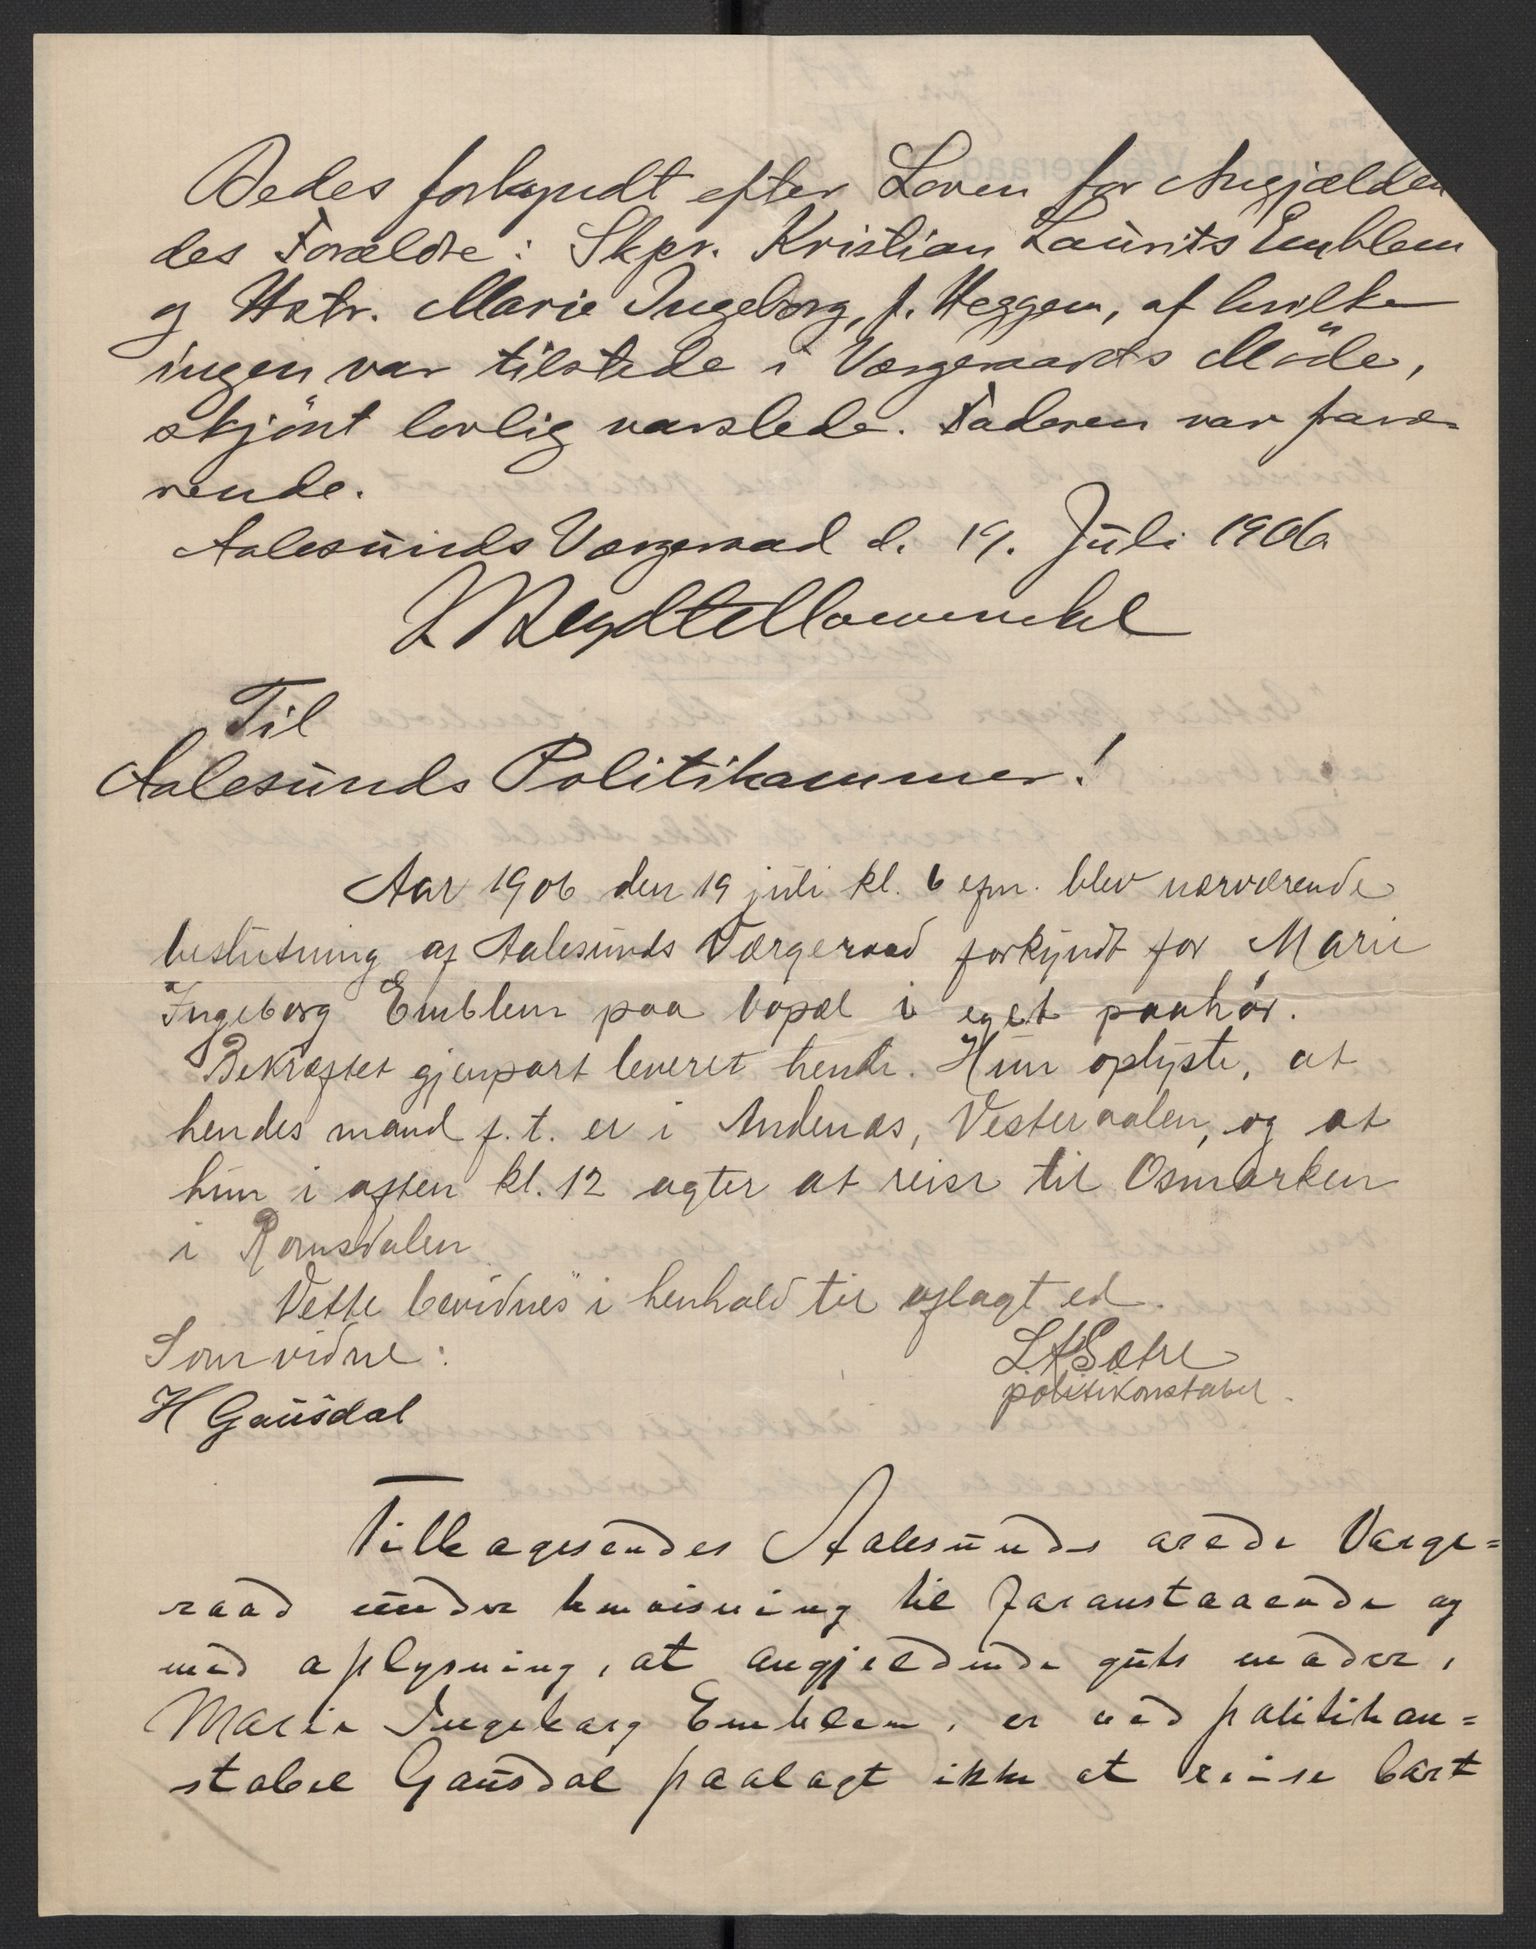 Bedes forkyndt efter Loven for Angjælden
des Forældre: Skpr. Kristian Laurits Emblem
og Hstr. Marie Ingeborg, f. Heggem, af hvilke
ingen var tilstede i Værgeraadets Möde,
skjönt lovlig varslede. Faderen var fravæ-
rende.
Aalesunds Værgeraad d. 19. Juli 1906
Til
Aalesunds Politikammer!
Aar 1906 den 19 juli kl. 6 efm. blev nærværende
beslutning af Aalesunds Værgeraad forkyndt for Marie
Ingeborg Emblem paa bopæl i eget paahør.
Bekræftet gjenpart leveret hende. Hun oplyste, at
hendes mand f. t. er i Andenæs, Vesteraalen, og at
hun i aften kl. 12 agter at reise til Osmarken
i Romsdalen
Dette bevidnes i henhold til aflagt ed.
Som vidne:
L A Sætre
politikonstabel.
H Gausdal
Tilbagesendes Aalesunds ærede Værge=
raad under henvisning til foranstaaende og
med oplysning, at angjældende guts moder,
Marie Ingeborg Emblem, er ved politikon=
stabel Gausdal paalagt ikke at reise bort